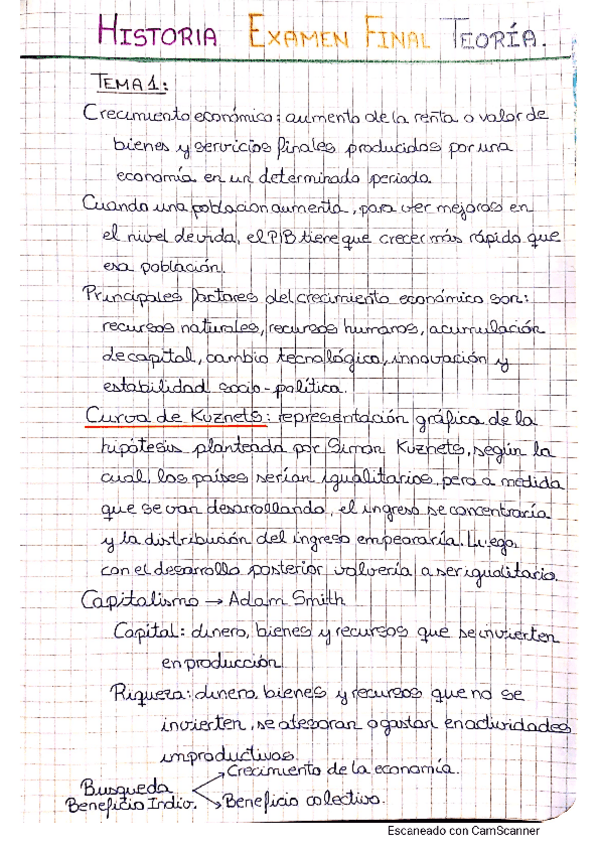 HISTORIA EXAMEN FINAL TEORÍA.
TEMA 1:
Crecimiento económico: aumento de la renta o valor de
bienes y servicios finales producidos por una
economía en un determinado periodo.
Cuando una poblacion aumenta, para ver mejoras en
el nivel de vida, el PIB tiene que crecer más rápido que
esa población.
Principales factores del crecimiento económico son:
recursos naturales, recursos humanos, acumulación
de capital, cambio tecnológico, innovación y
estabilidad socio-política.
Curva de Kuznets: representación gráfica de la
hipótesis planteada por Simon Kuznets, según la
cual, los países serían igualitarios, pero a medida
que se van desarrollando, el ingreso se concentraría
y la distribución del ingreso empeoraría. Luego,
con el desarrollo posterior volvería a ser igualitario.
Capitalismo → Adam Smith
Capital: dinero, bienes y recursos que se invierten
en producción
Riqueza: dinero, bienes y recursos que no se
invierten, se atesoran o gastan en actividades
improductivas.
Busqueda Beneficio Indiv. → Crecimiento de la economía.
→ Beneficio colectivo.
Escaneado con CamScanner